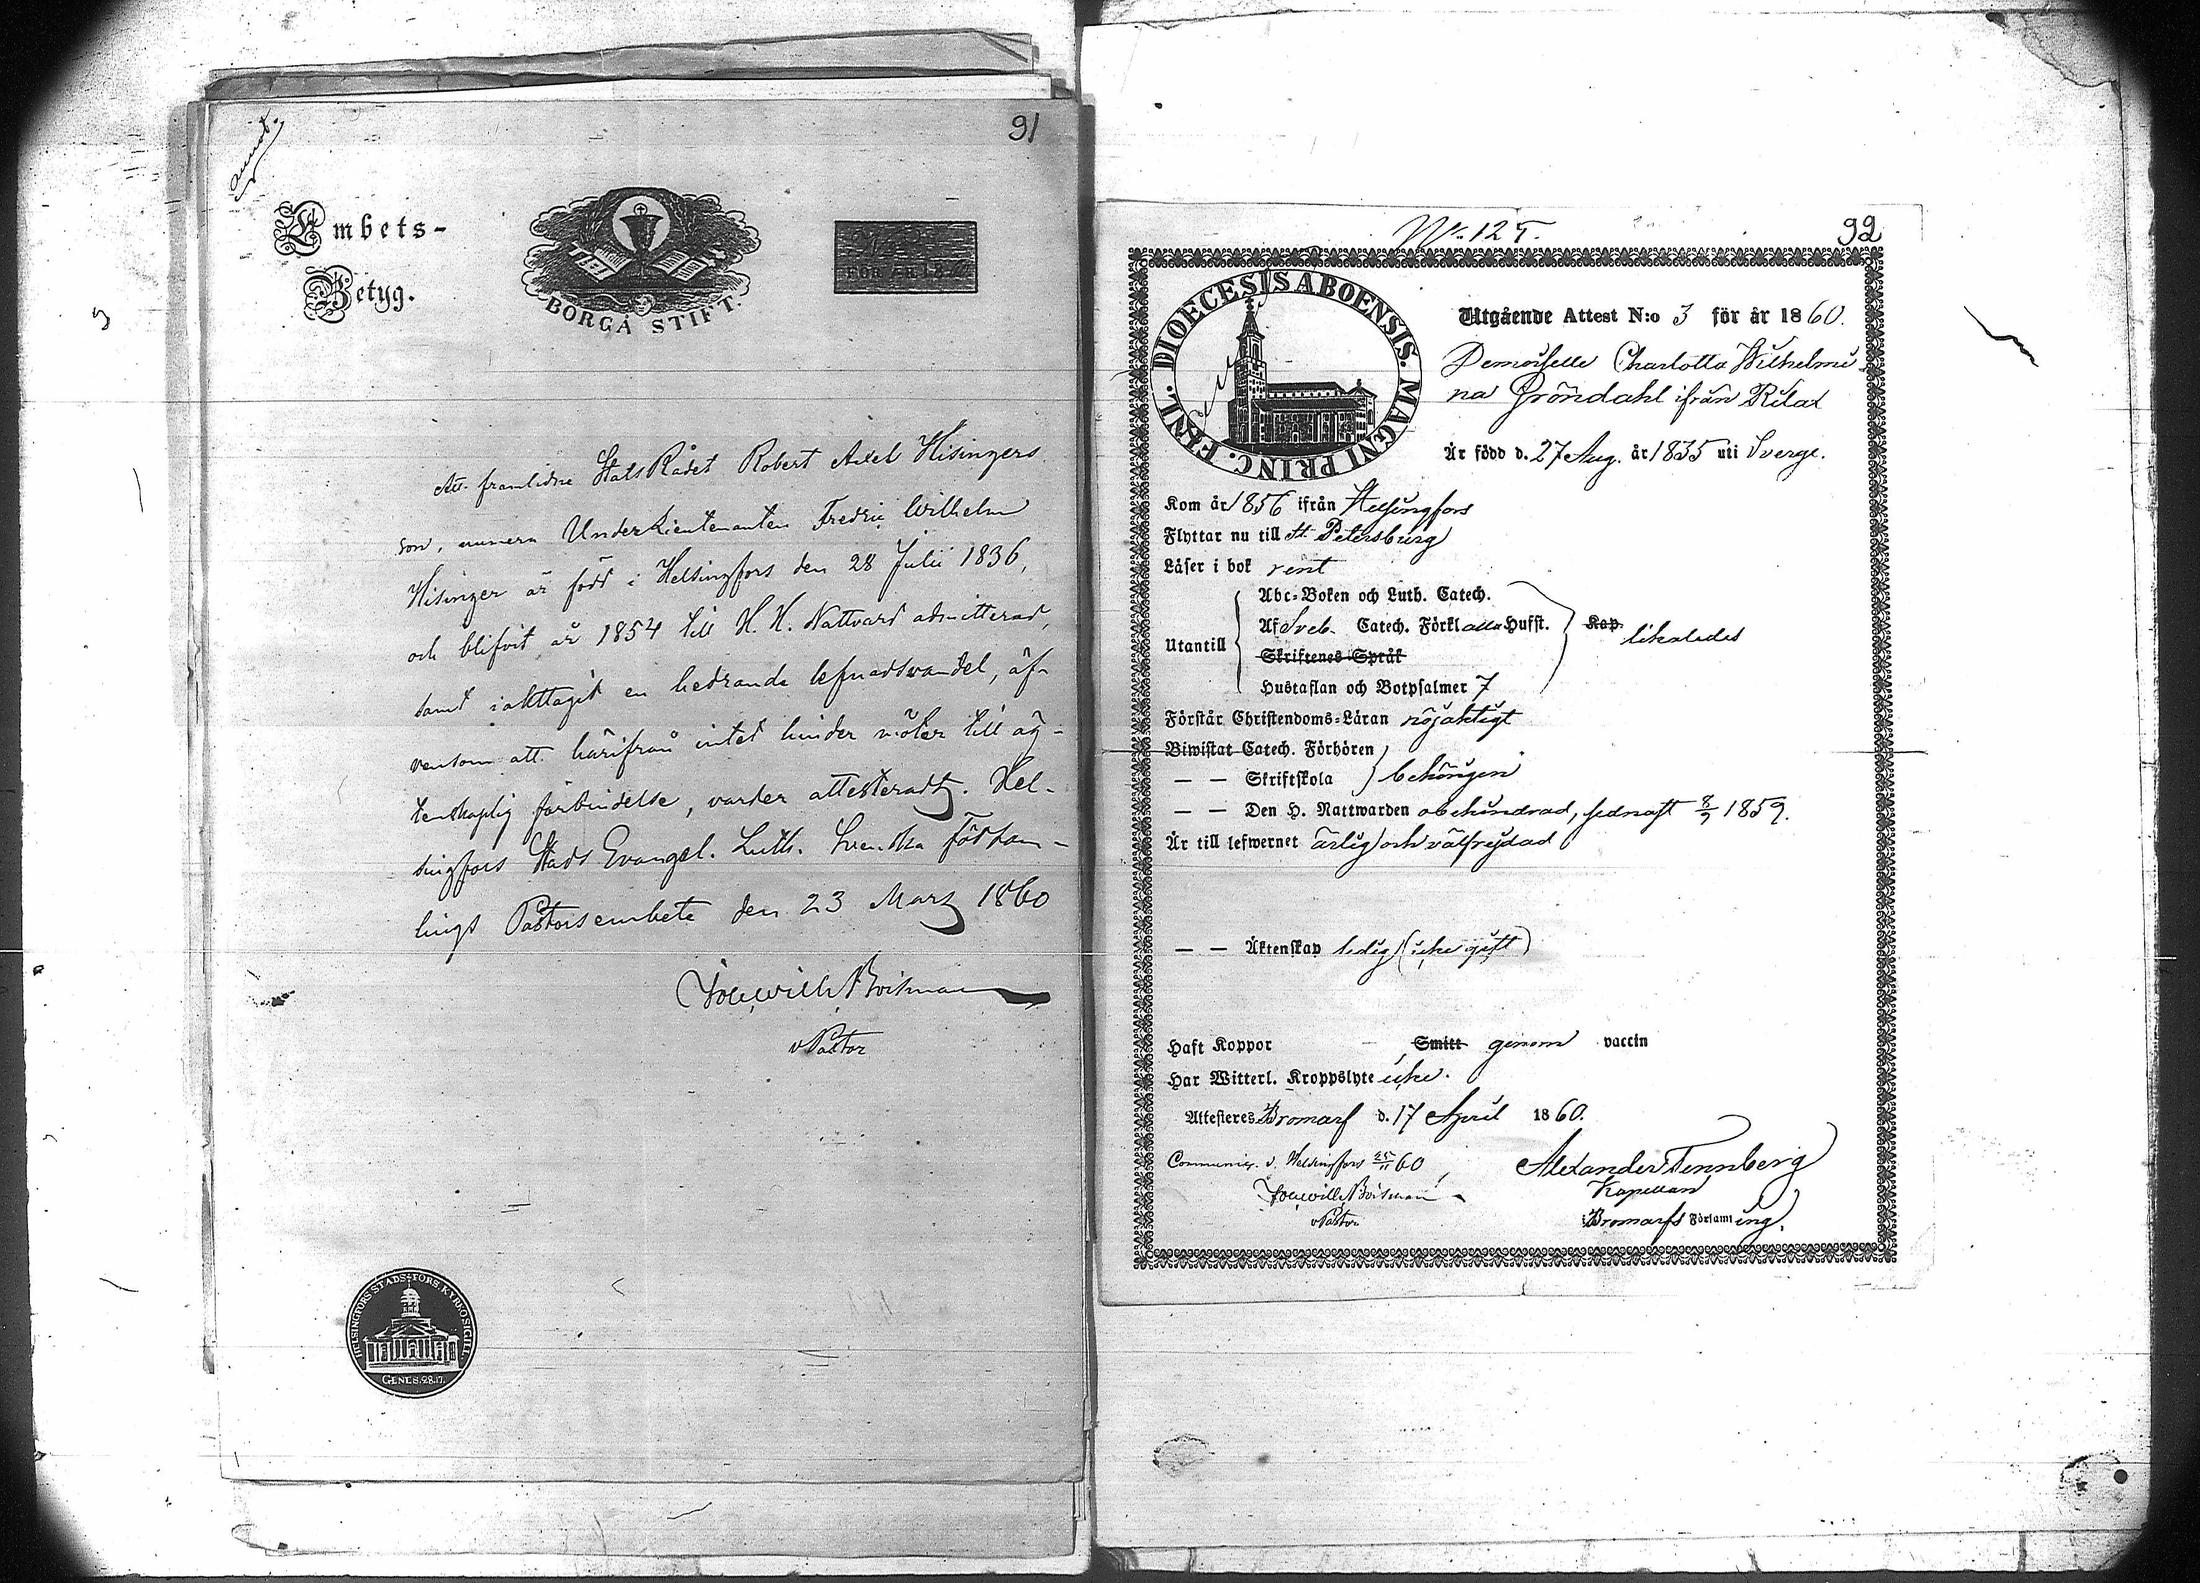 91
Embets-
Betyg.
BORGÅ STIFT.
FÖR ÅR 18
Att framlidne StatsRådet Robert Axel Hisingers
son, numera UnderLieutenanten Fredric Wilhelm
Hisinger är född i Helsingfors den 28 Julii 1836,
och blifvit år 1854 till H. H. Nattvard admitterad,
samt iakttagit en hedrande lefnadswandel, äf-
vensom att härifrån intet hinder möter till äg-
tenskaplig förbindelse, varder attesteradt. Hel-
singfors Stads Evangel. Luth. Svenska Försam-
lings Pastorsembete den 23 Mars 1860
Joh. Wilh. Boisman
v Pastor
HELSINGFORS STADS FÖRS. KYRKOSIGILL.
GENES. 28.17.
No. 125.
92
DIOECESIS ÅBOENSIS. MAGNI PRINC. FINL.
Utgående Attest N:o 3 för år 1860.
Demoiselle Charlotta Wilhelmi
na Gröndahl ifrån Rilax
Är född d. 27 Aug. år 1835 uti Sverge.
Kom år 1856 ifrån Helsingfors
Flyttar nu till St. Petersburg
Läser i bok rent
Abc-Boken och Luth. Catech.
Utantill Af Sveb. Catech. Förkl alla Hufst. Kap. likaledes
Skriftenes Språk
Hustaflan och Botpsalmer 7
Förstår Christendoms-Läran nöjaktigt
Biwistat Catech. Förhören
— — Skriftskola behörigen
— — Den H. Nattwarden obehindrad, sednast 1859.
Är till lefwernet ärlig och välfrejdad
— — Äktenskap ledig (icke gift)
Haft Koppor Smitt genom vaccin
Har Witterl. Kroppslyte icke.
Attesteres Bromarf d. 17 April 1860.
Communic. i Helsingfors 25/11 60
Joh. Wilh. Boisman
v Pastor
Alexander Tennberg
Kapellan
i Bromarfs Församling.